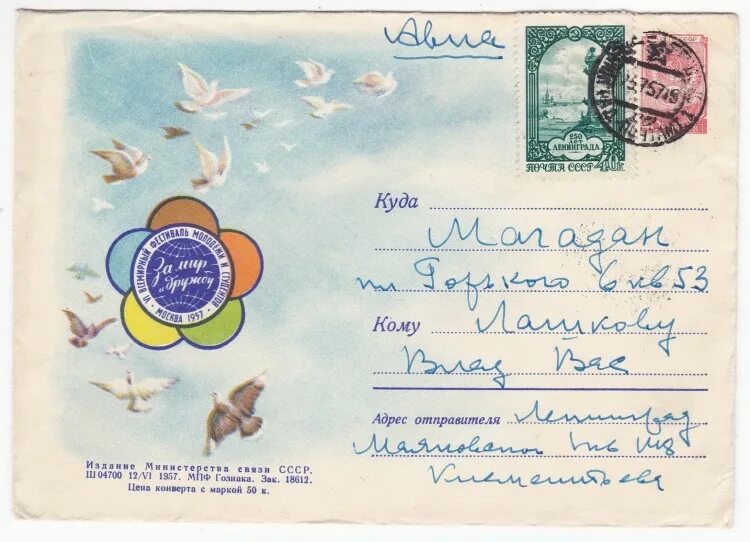 Авиа
250
ЛЕТ
ЛЕНИНГРАДА.
ПОЧТА СССР 40к
VI ВСЕМИРНЫЙ ФЕСТИВАЛЬ МОЛОДЕЖИ И СТУДЕНТОВ
За мир
и дружбу
МОСКВА 1957
Куда
Магадан
пл Горького 6 кв 53
Кому Лашкову
Влад Вас
Адрес отправителя Ленинград
Маяковского
Клементьева
Издание Министерства связи СССР.
Ш 04700 12/VI 1957. МПФ Гознака. Зак. 18612.
Цена конверта с маркой 50 к.